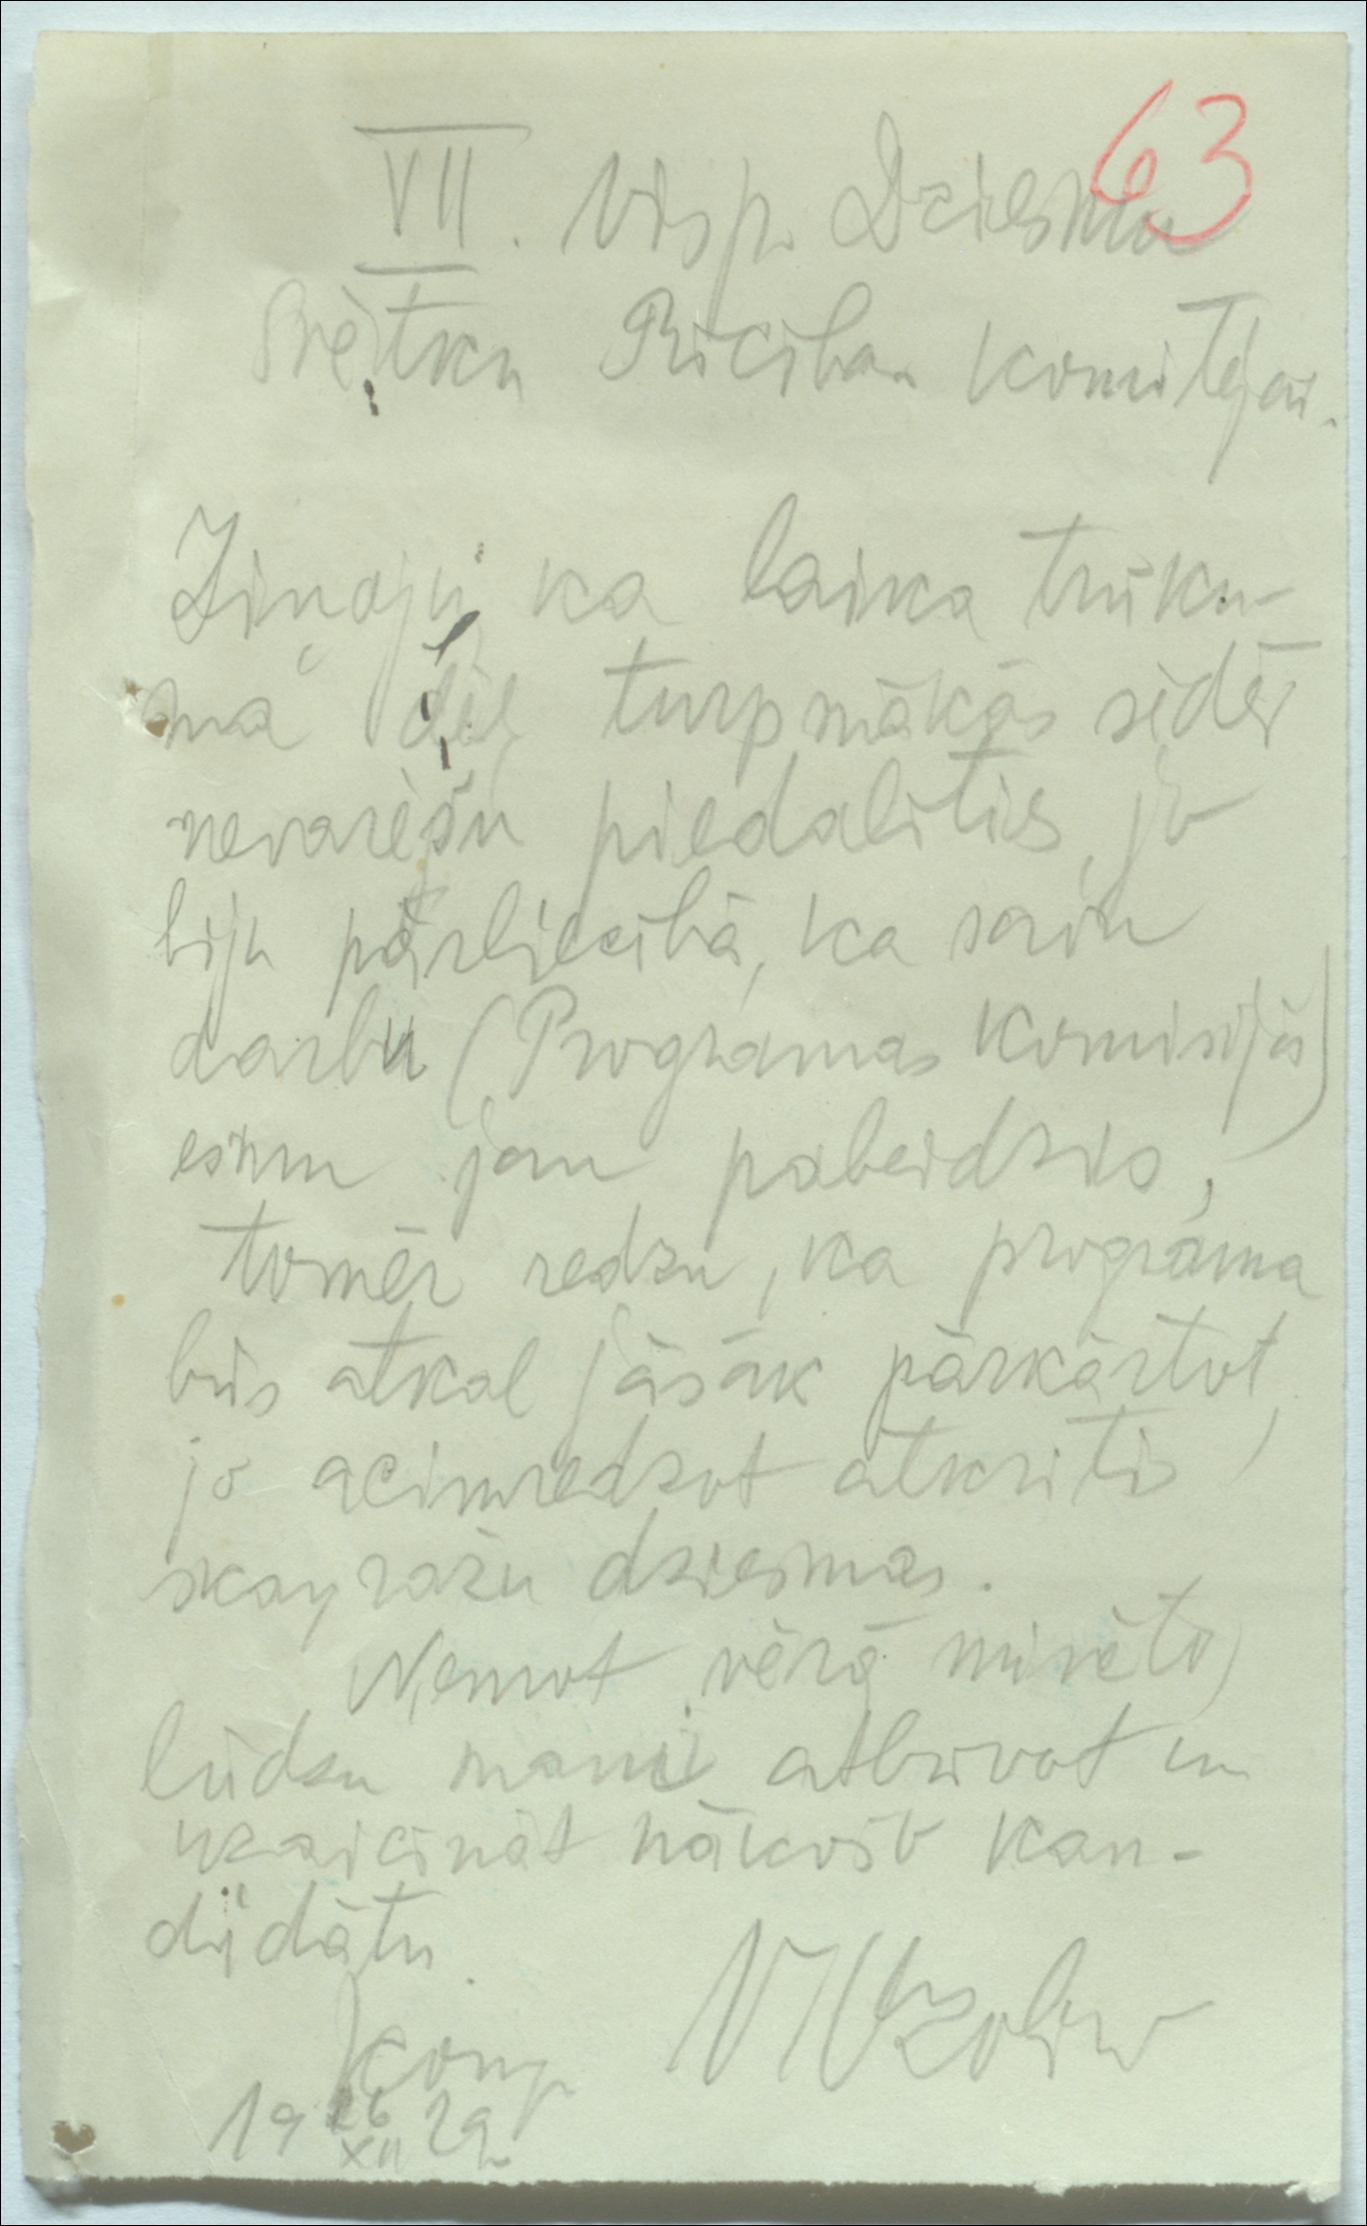 63
VII. Visp. Dziesmu
Svētku Rīcības Komitejai.
Ziņoju, ka laika trūku-
ma dēļ turpmākās sēdēs
nevarēšu piedalīties, jo
biju pārliecībā, ka savu
darbu (Programas Komisijā)
esmu jau pabeidzis,
tomēr redzu, ka programa
būs atkal jāsāk pārkārtot,
jo acimredzot atkritīs
skaņražu dziesmas.
Ņemot vērā minēto
lūdzu mani atbrīvot un
uzaicināt nākošo kan-
didātu.
Komp.
19 26/XII 29